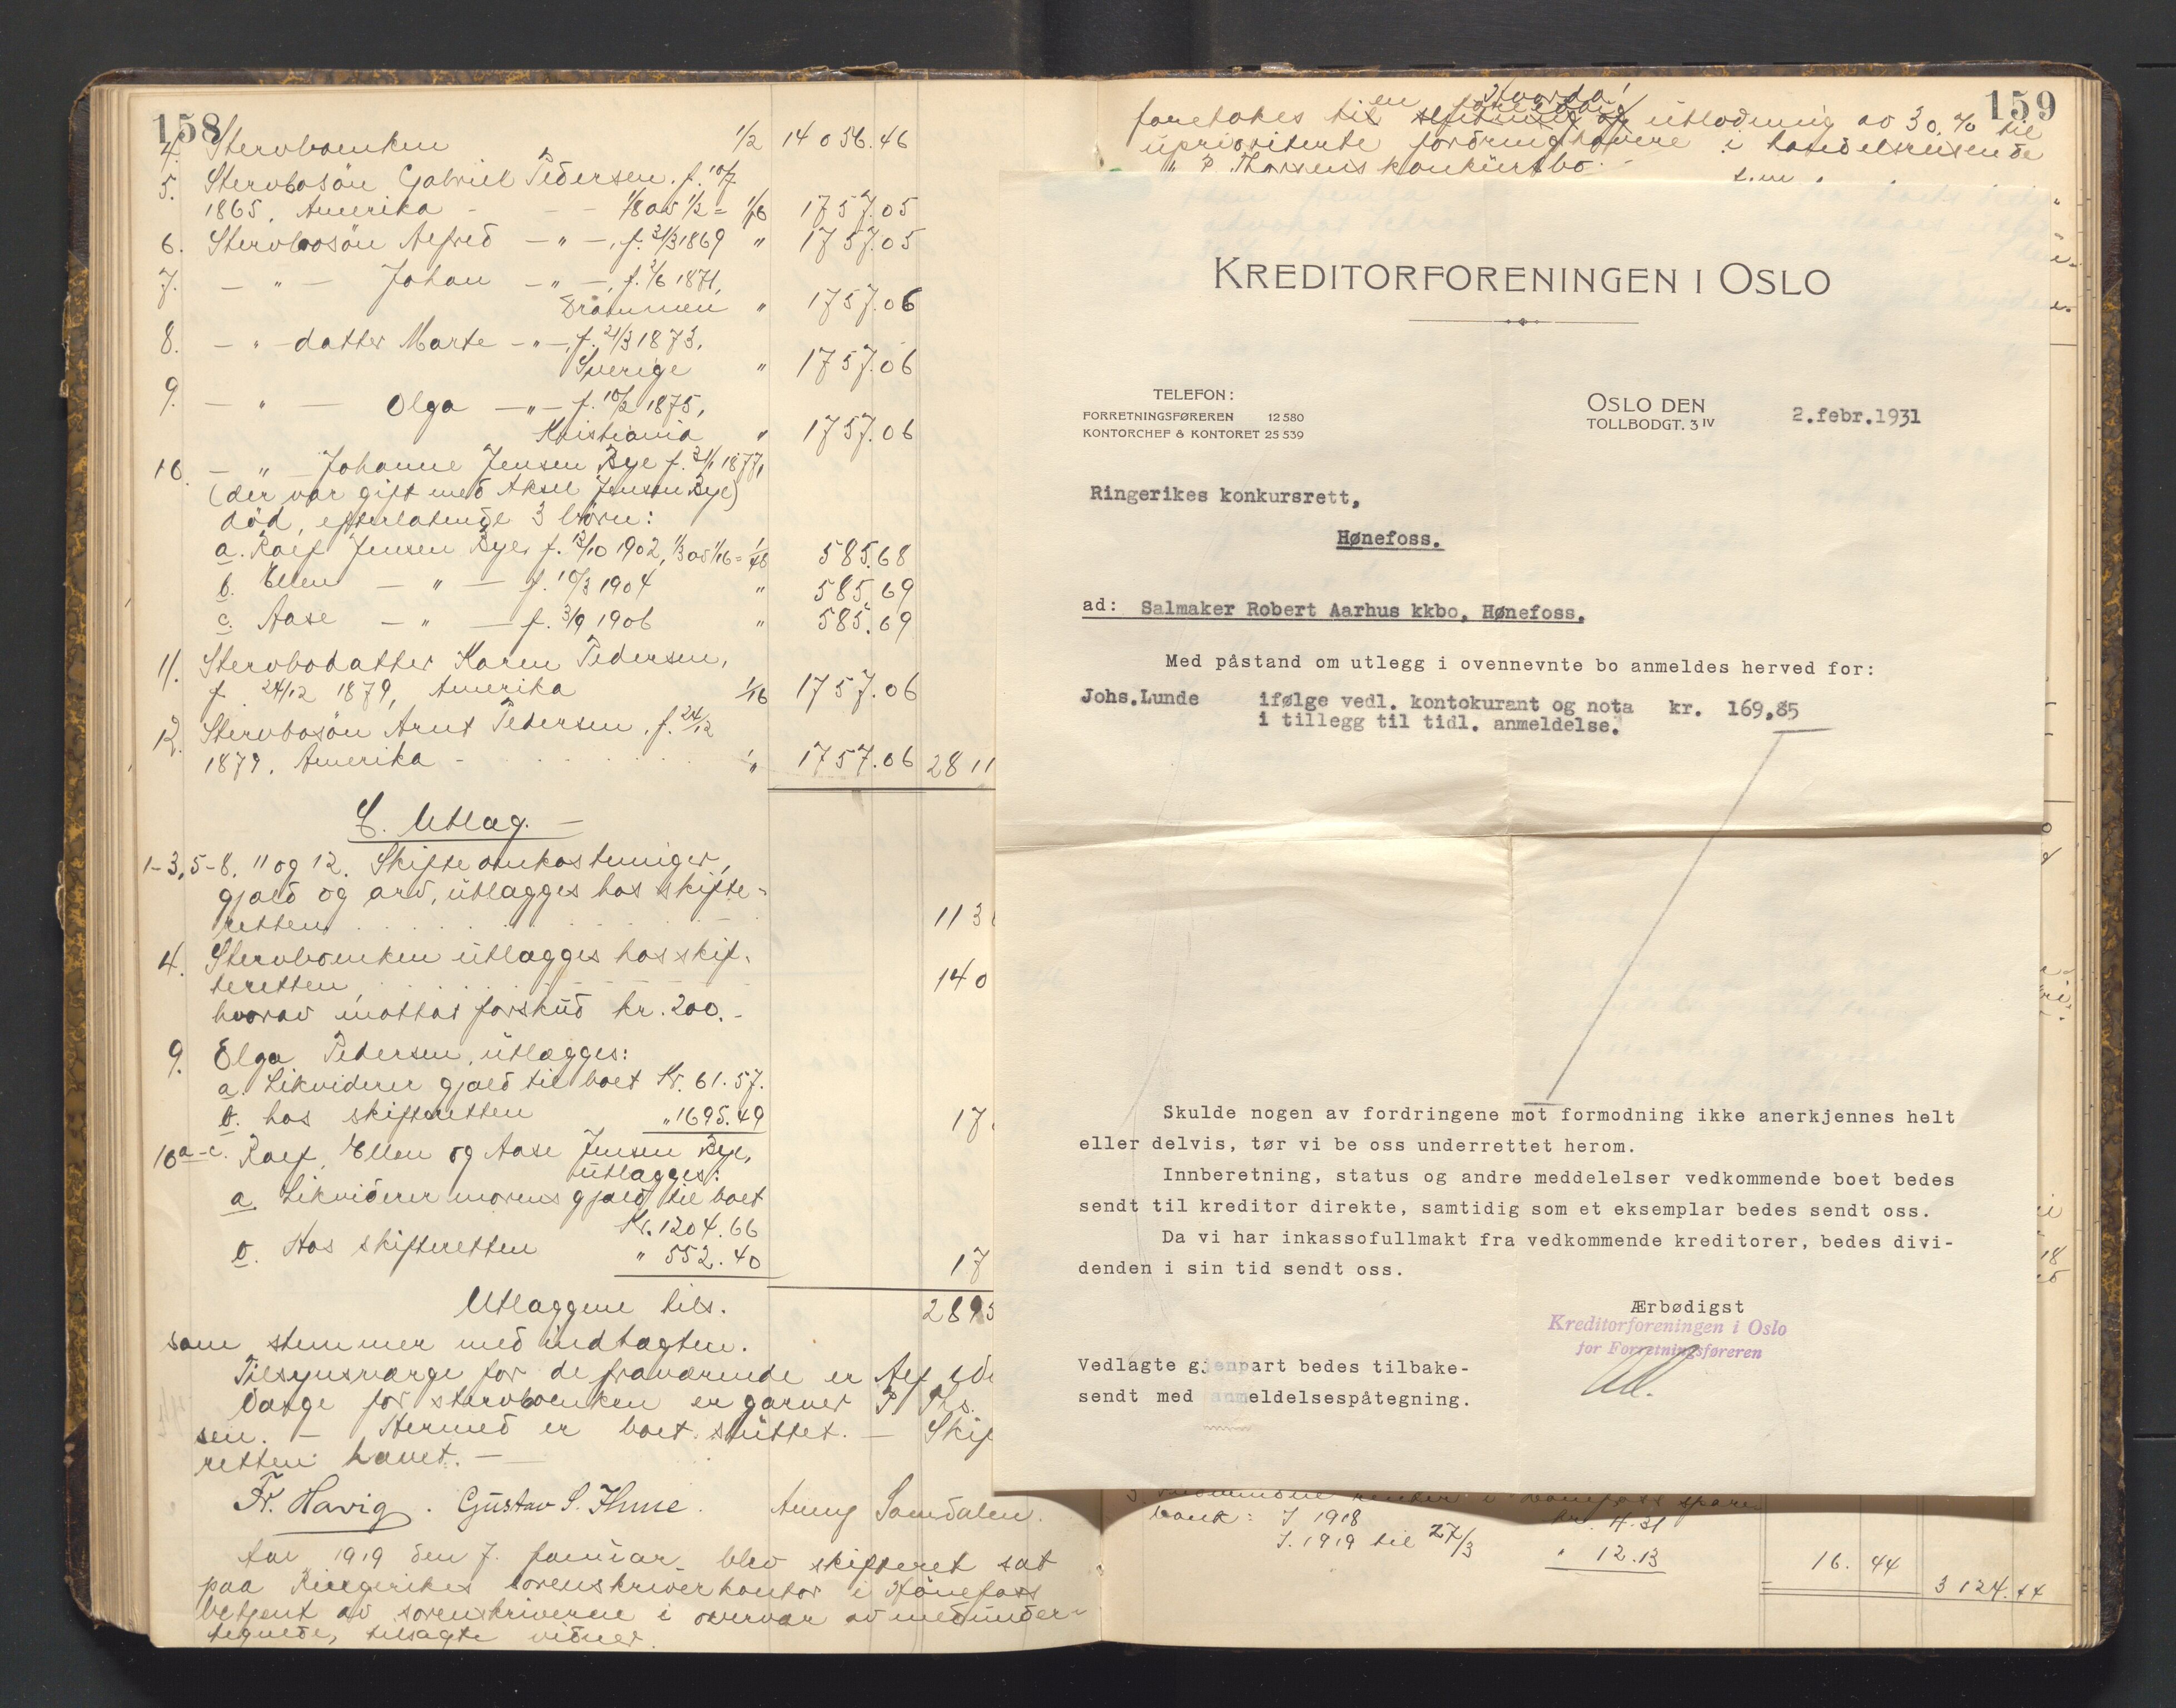 158
4. Stervboenken 1/2 14 056.46
5. Stervbosön Gabriel Pedersen. f. 10/7
1865, Amerika - - - 1/8 av 1/2 = 1/16 1757.05
6. Stervbosön Alfred - " -, f. 21/3 1869 " 1757.05
7. - " - Johan - " -, f. 2/6 1871,
Drammen " 1757.06
8. - " - datter Marte - " -, f. 21/3 1873,
Sverige " 1757.06
9. - " - Olga - " - f. 10/2 1875,
Kristiania " 1757.06
10. - " - Johanne Jensen Bye f. 21/1 1877,
(der var gift med Aksel Jensen Bye)
död, efterlatende 3 börn:
a. Rolf Jensen Bye, f. 13/10 1902, 1/3 av 1/16 = 1/48 585.68
b. Ellen - " - f. 10/3 1904 " 585.69
c. Aase - " - f. 3/9 1906 " 585.69
11. Stervbodatter Karen Pedersen,
f. 24/12 1879, Amerika 1/16 1757.06
12. Stervbosön Arnt Pedersen, f. 24/12
1879, Amerika - " 1757.06 2811
C. Utlæg. -
1-3, 5-8, 11 og 12. Skifteomkostninger,
gjæld og arv, utlægges hos skifte-
retten 113
4. Stervboenken utlægges hos skif-
teretten, 140
hvorav mottat forskud kr. 200. -
9. Olga Pedersen, utlægges:
a. Likviderer gjæld til boet Kr. 61.57.
b. hos skifteretten " 1695.49 17
10 a-c. Rolf, Ellen og Aase Jensen Bye,
utlægges:
a. Likviderer morens gjæld til boet
Kr. 1204.66
b. Hos skifteretten " 552.40 17
Utlæggene tils. 2895
som stemmer med indtægten.
Tilsynsværge for de fraværende er Alf
Værge for stervboenken er garver P. Ths.
sen. - Hermed er boet sluttet. - Skif
retten hævet. -
Fr. Havig. Gustav S. Hme. Anny Somdalen.
Aar 1919 den 7. januar blev skifteret sat
paa Ringerikes sorenskriverkontor i Hönefoss
betjent av sorenskriveren i overvær av medunder-
tegnede, tilsagte vidner.
159
foretokes en utlodning av 30 % til
uprioriterte fordringshavere i handelsreisende
P. Thorsens konkursbo. -
KREDITORFORENINGEN I OSLO
TELEFON:
FORRETNINGSFØREREN 12 580
KONTORCHEF & KONTORET 25 539
OSLO DEN 2.febr.1931
TOLLBODGT. 3 IV
Ringerikes konkursrett,
Hønefoss.
ad: Salmaker Robert Aarhus kkbo, Hønefoss.
Med påstand om utlegg i ovennevnte bo anmeldes herved for:
Johs.Lunde ifølge vedl. kontokurant og nota kr. 169,85
i tillegg til tidl. anmeldelse.
Skulde nogen av fordringene mot formodning ikke anerkjennes helt
eller delvis, tør vi be oss underrettet herom.
Innberetning, status og andre meddelelser vedkommende boet bedes
sendt til kreditor direkte, samtidig som et eksemplar bedes sendt oss.
Da vi har inkassofullmakt fra vedkommende kreditorer, bedes divi-
denden i sin tid sendt oss.
Ærbødigst
Kreditorforeningen i Oslo
for Forretningsføreren
Vedlagte gjenpart bedes tilbake-
sendt med anmeldelsespåtegning.
bank: I 1918 kr. 4.31
I. 1919 til 27/3 " 12.13 16.44
3 124.44